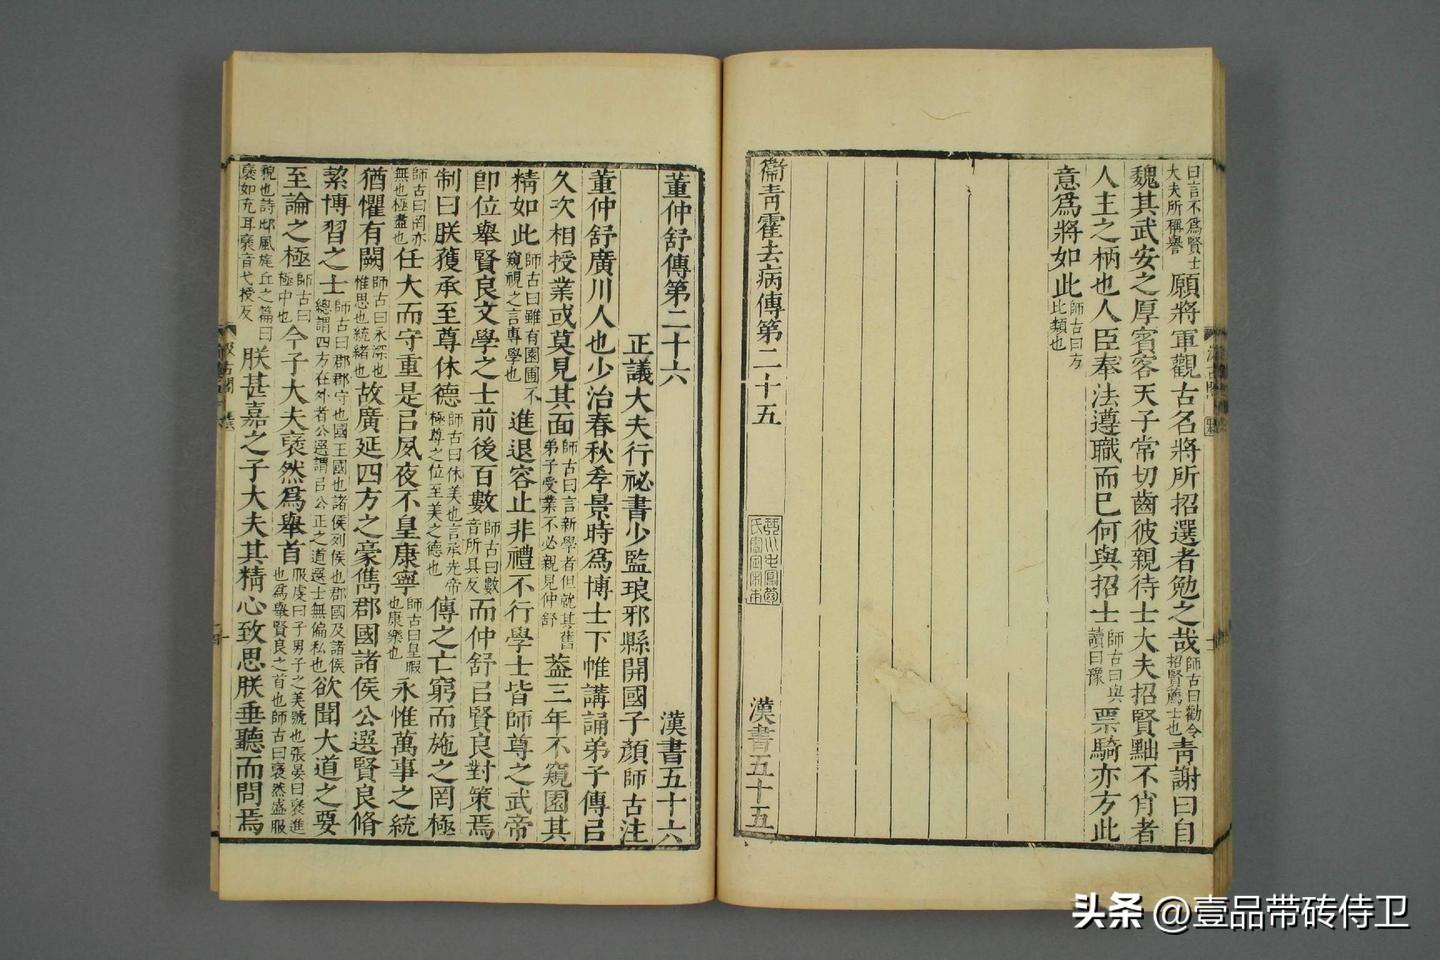 曰言不爲賢士大夫所稱譽願將軍觀古名將所招選者勉之哉師古曰勸令招賢薦士也青謝曰自
魏其武安之厚賓客天子常切齒彼親待士大夫招賢黜不肖者
人主之柄也人臣奉法遵職而已何與招士師古曰與讀曰豫票騎亦方此
意爲將如此師古曰方比類也
衞青霍去病傳第二十五 漢書五十五
琴川毛鳳苞氏審定宋本
董仲舒傳第二十六 漢書五十六
正議大夫行祕書少監琅邪縣開國子顔師古注
董仲舒廣川人也少治春秋孝景時爲博士下帷講誦弟子傳㠯
久次相授業或莫見其面師古曰言新學者但就其舊弟子受業不必親見仲舒蓋三年不窺園其
精如此師古曰雖有園圃不窺視之言專學也進退容止非禮不行學士皆師尊之武帝
卽位舉賢良文學之士前後百數師古曰數音所具反而仲舒㠯賢良對策焉
制曰朕獲承至尊休德師古曰休美也言承先帝極尊之位至美之德也傳之亡窮而施之罔極
師古曰罔亦無也極盡也任大而守重是㠯夙夜不皇康寧師古曰皇暇也康樂也永惟萬事之統
猶懼有闕師古曰永深也惟思也統緒也故廣延四方之豪儁郡國諸侯公選賢良脩
絜博習之士師古曰郡郡守也國王國也諸侯列侯也郡國及諸侯總謂四方在外者公選謂㠯公正之道選士無偏私也欲聞大道之要
至論之極師古曰極中也今子大夫褎然爲舉首服虔曰子男子之美號也張晏曰褎進也爲舉賢良之首也師古曰褎然盛服
貌也詩邶風旄丘之篇曰褎如充耳褎音弋授反朕甚嘉之子大夫其精心致思朕垂聽而問焉
头条 @壹品带砖侍卫